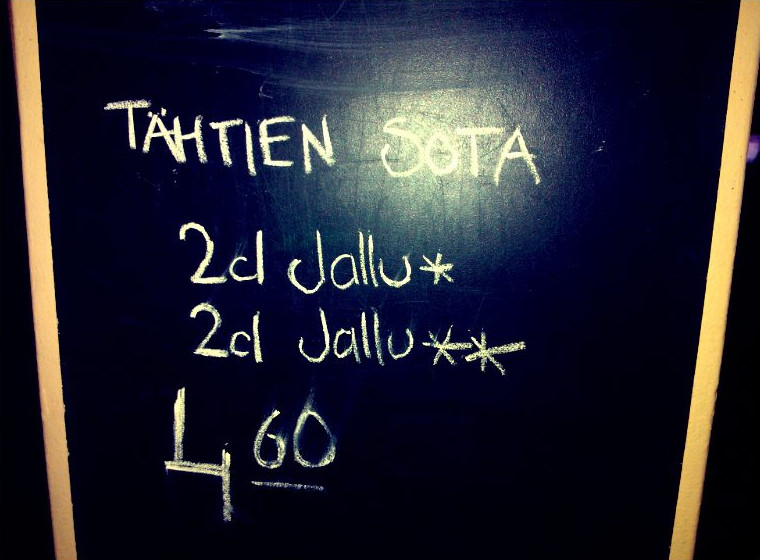 TÄHTIEN SOTA
2cl Jallu*
2cl Jallu**
4 60